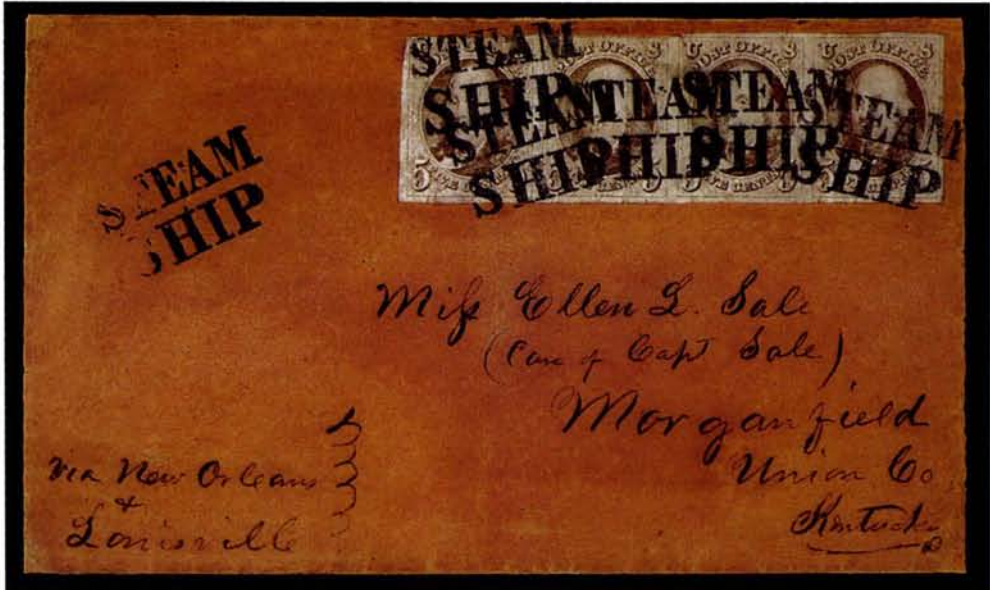 STEAM
SHIP
STEAM
SHIP
STEAM
SHIP
STEAM
SHIP
STEAM
SHIP
U POST OFFICE S
U POST OFFICE S
5
STEAM
SHIP
Miſs Ellen L. Sale
(Care of Capt Sale)
Morganfield
Union Co
Kentucky
Via New Orleans
&
Louisville